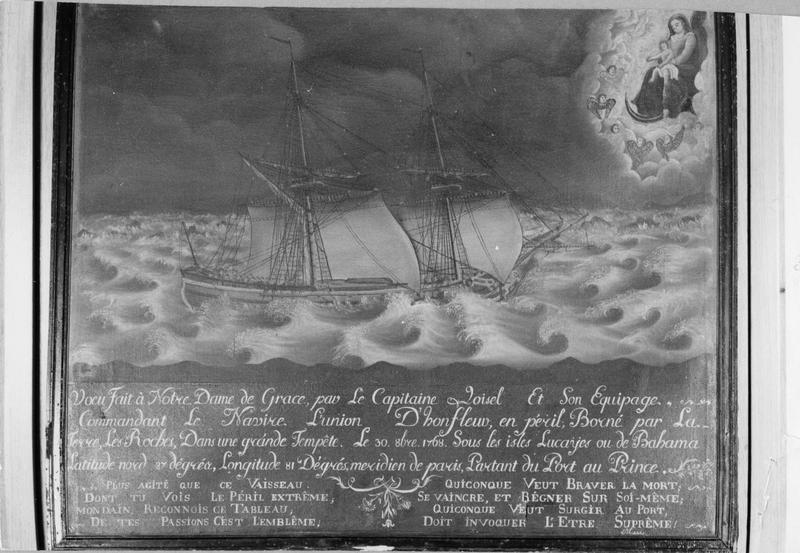 Voeu Fait à Notre Dame de Grace, par Le Capitaine Loisel Et Son Equipage.
Commandant Le Navire L'union D'honfleur, en péril, Borné par La
Terre, Les Roches, Dans une grande Tempête. Le 30. 8bre. 1768. Sous les isles Lucayes ou de Bahama
Latitude nord 27 dégrés, Longitude 81 Dégrés, meridien de paris, Partant du Port au Prince.
Plus agité que ce Vaisseau.
Dont tu Vois Le Péril extrême;
mondain, Reconnois ce Tableau,
De tes Passions C'est L'emblême;
Quiconque Veut Braver la mort;
Se vaincre, et Régner Sur Soi-même;
Quiconque Veut Surgir Au Port,
Doit invoquer L'Etre Suprême!